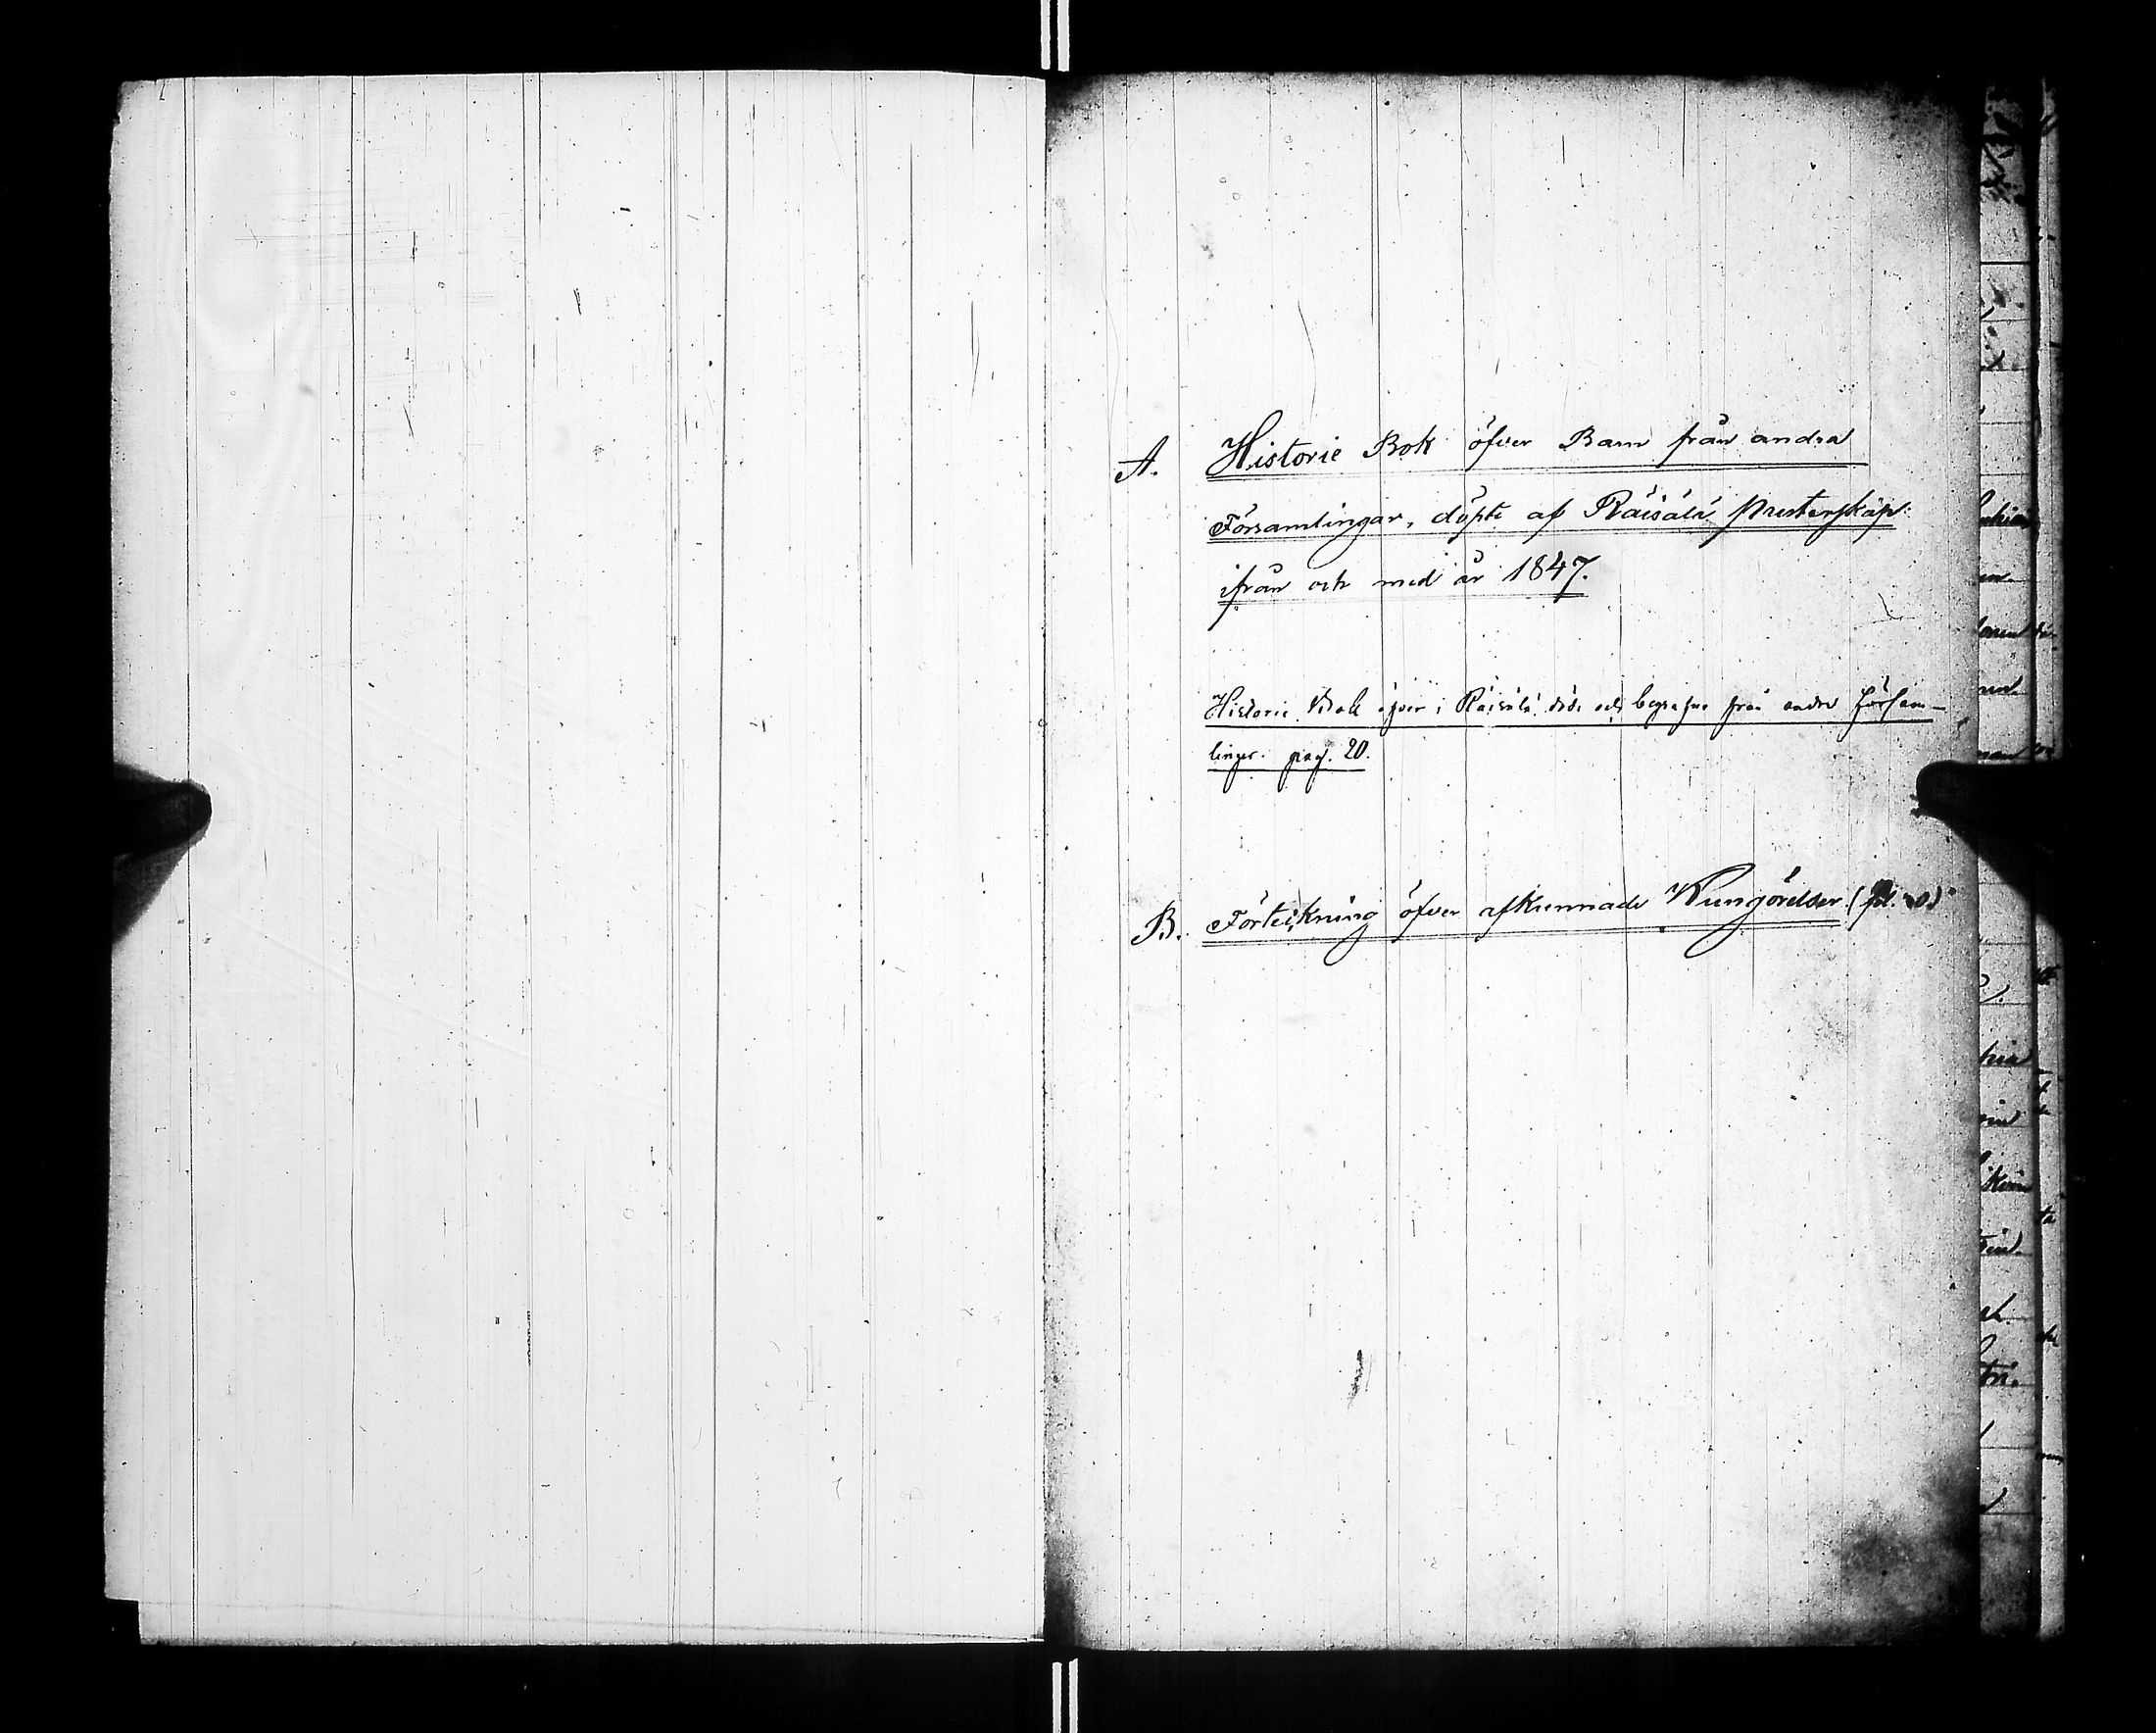 A. Historie Bok öfver Barn från andra
Församlingar, döpte af Räisälä Presterskap
ifrån och med år 1847.
Historie Bok öfver i Räisälä döde och begrafne från andre Försam-
lingar. pag. 20.
B. Förteckning öfver afkunnade Kungörelser